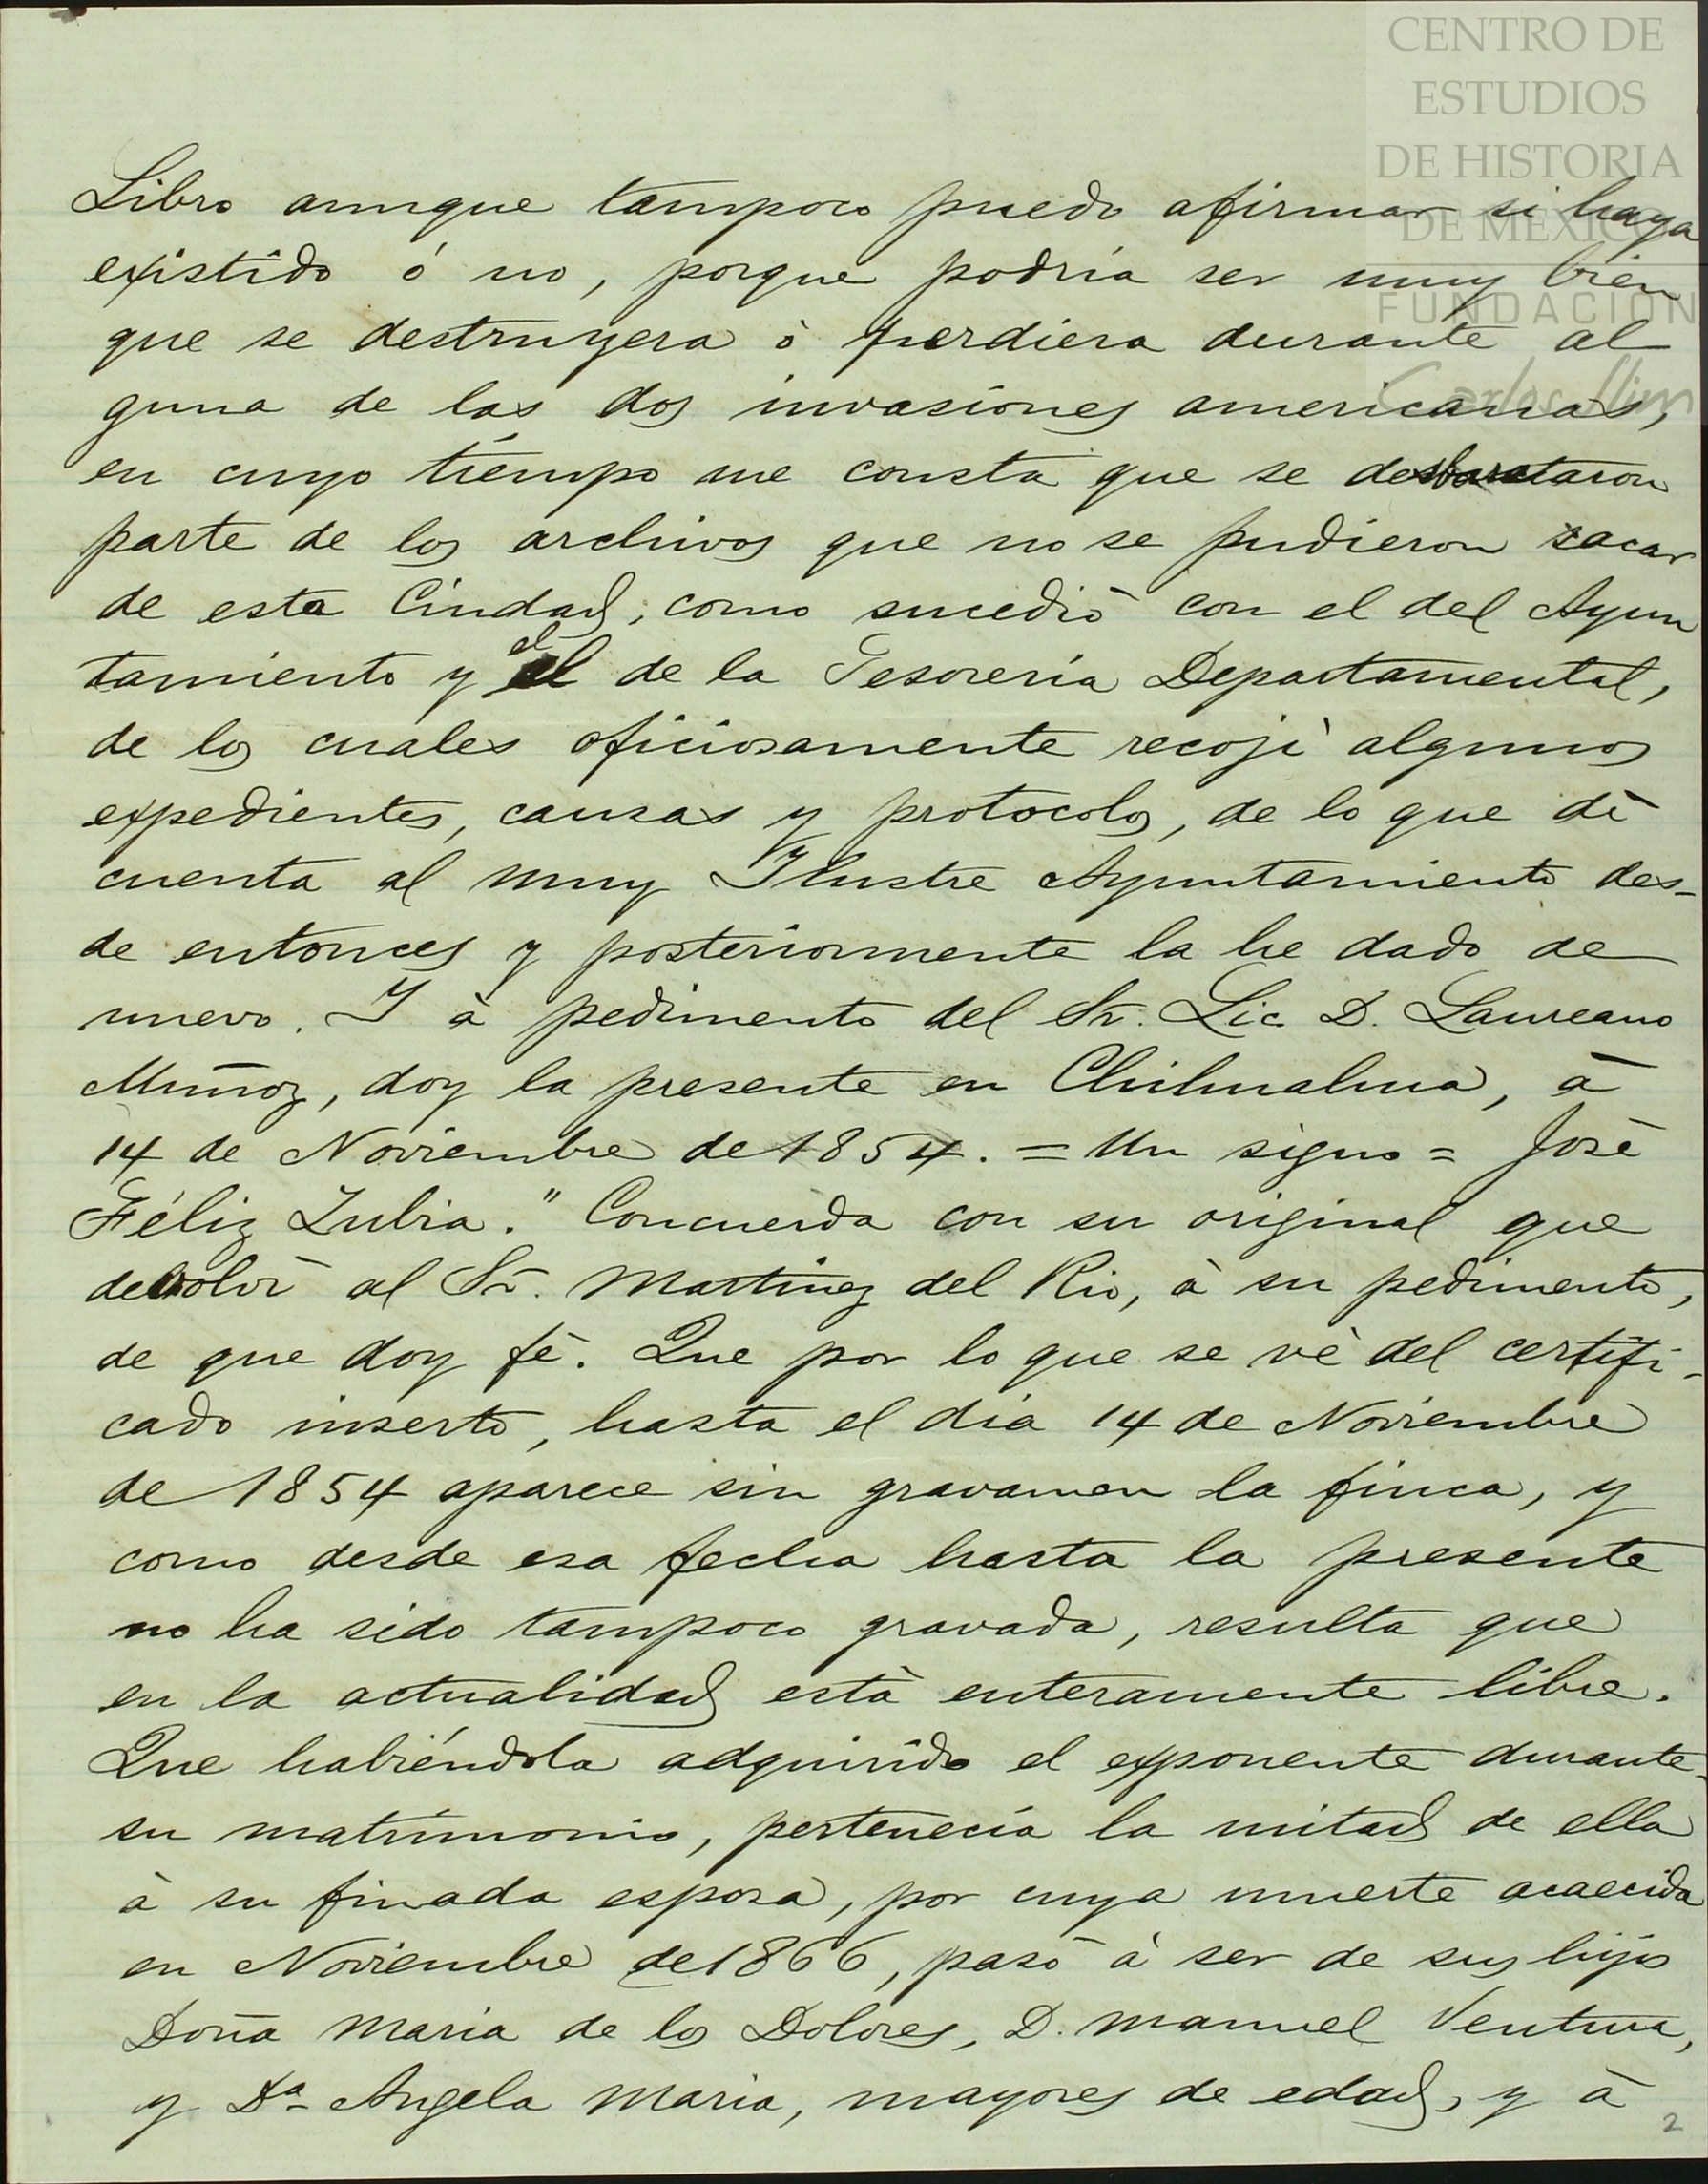 CENTRO DE
ESTUDIOS
DE HISTORIA
DE MÉXICO
FUNDACIÓN
Carlos Slim
Libro aunque tampoco puedo afirmar si haya
existido ó no, porque podría ser muy bien
que se destruyera ò perdiera durante al
guna de las dos invasiones americanas,
en cuyo tiempo me consta que se desbarataron
parte de los archivos que no se pudieron sacar
de esta Ciudad, como sucediò con el del Ayun
tamiento y el de la Tesorería Departamental,
de los cuales oficiosamente recojì algunos
expedientes, causas y protocolos, de lo que dì
cuenta al muy Ilustre Ayuntamiento des-
de entonces y posteriormente la he dado de
nuevo. Y à pedimento del Sr. Lic. D. Laureano
Muñoz, doy la presente en Chihuahua, à
14 de Noviembre de 1854. = Un signo = José
Féliz Zubia." Concuerda con su original que
devolvì al Sr. Martinez del Rio, à su pedimento,
de que doy fè. Que por lo que se vè del certifi-
cado inserto, hasta el dia 14 de Noviembre
de 1854 aparece sin gravamen la finca, y
como desde esa fecha hasta la presente
no ha sido tampoco gravada, resulta que
en la actualidad està enteramente libre.
Que habiéndola adquirido el exponente durante
su matrimonio, pertenecía la mitad de ella
à su finada esposa, por cuya muerte acaecida
en Noviembre de 1866, pasò à ser de sus hijos
Doña Maria de los Dolores, D. Manuel Ventura,
y Dª Angela Maria, mayores de edad, y à
2